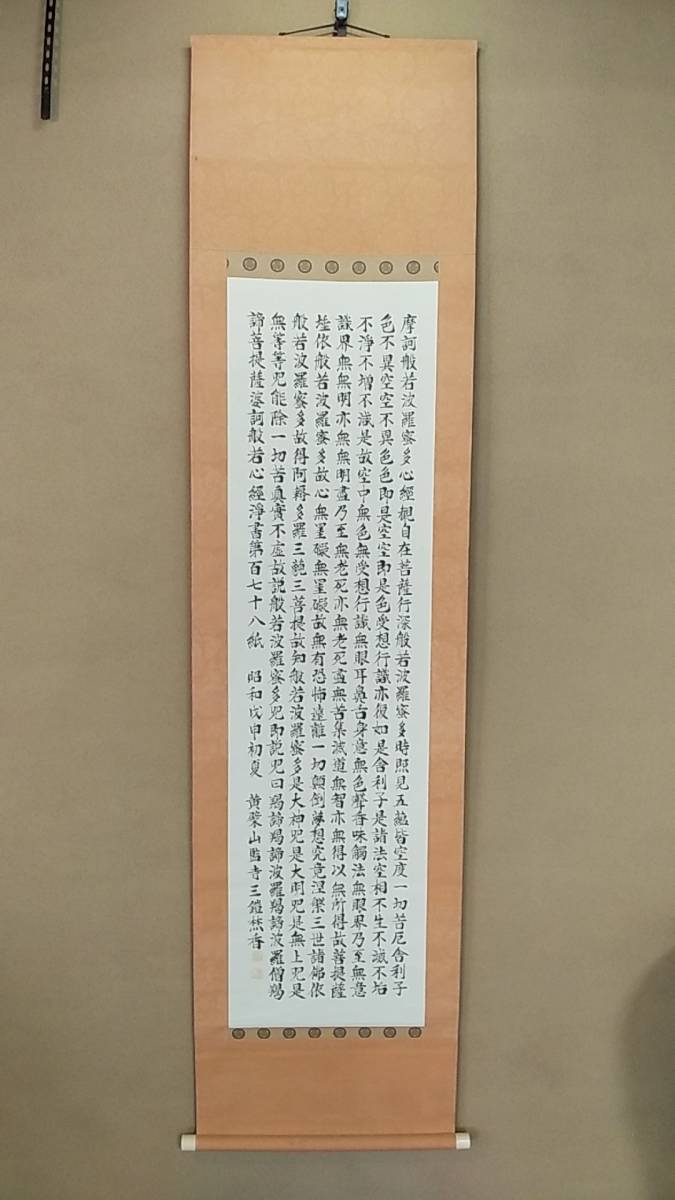 摩訶般若波羅蜜多心經觀自在菩薩行深般若波羅蜜多時照見五蘊皆空度一切苦厄舎利子
色不異空空不異色色即是空空即是色受想行識亦復如是舎利子是諸法空相不生不滅不垢
不淨不増不滅是故空中無色無受想行識無眼耳鼻舌身意無色聲香味觸法無眼界乃至無意
識界無無明亦無無明盡乃至無老死亦無老死盡無苦集滅道無智亦無得以無所得故菩提薩
埵依般若波羅蜜多故心無罣礙無罣礙故無有恐怖遠離一切顛倒夢想究竟涅槃三世諸佛依
般若波羅蜜多故得阿耨多羅三藐三菩提故知般若波羅蜜多是大神咒是大明咒是無上咒是
無等等咒能除一切苦真實不虚故説般若波羅蜜多咒即説咒曰羯諦羯諦波羅羯諦波羅僧羯
諦菩提薩婆訶般若心經淨書第百七十八紙 昭和戊申初夏 黄檗山監寺三鎧焚香